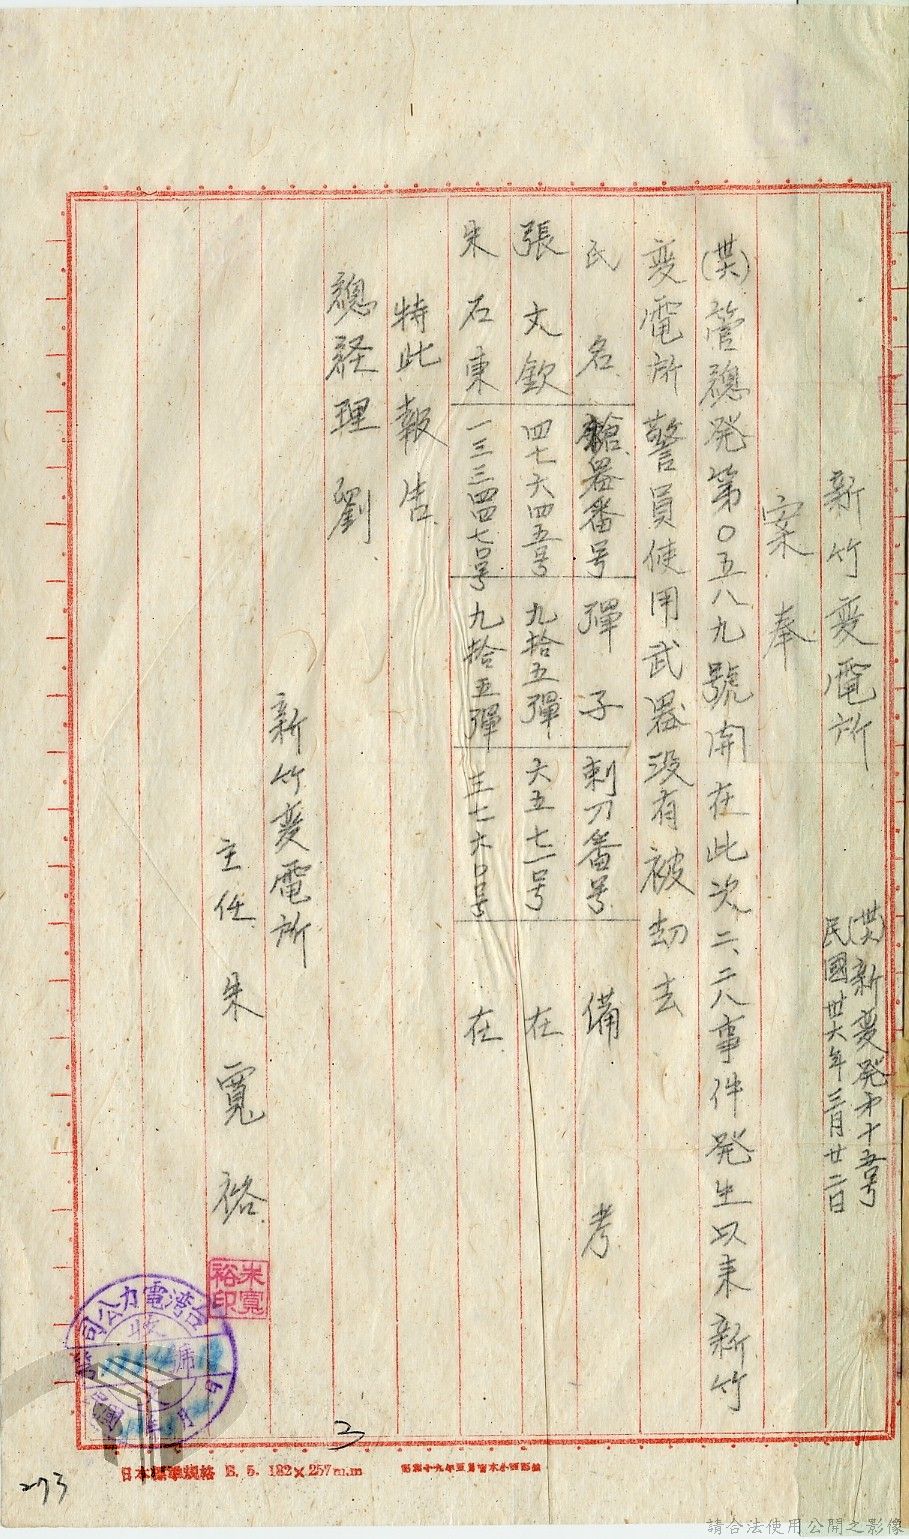 (卅六)新変発才十五号
民國卅六年三月廿二日
新竹変電所
案奉
(卅六)管總発第〇五八九號開在此次二、二八事件発生以来新竹
変電所警員使用武器没有被劫去
氏名 槍器番号 彈子 刺刀番号 備考
張文欽 四七六四五号 九拾五彈 六五七一号 在
朱石東 一三三四四七〇号 九拾五彈 三七六〇号 在
特此報告
總経理劉
新竹変電所
主任 朱寬裕
朱寬裕印
台灣電力公司
收
3
273
日本標準規格 B. 5. 182×257m.m
請合法使用公開之影像